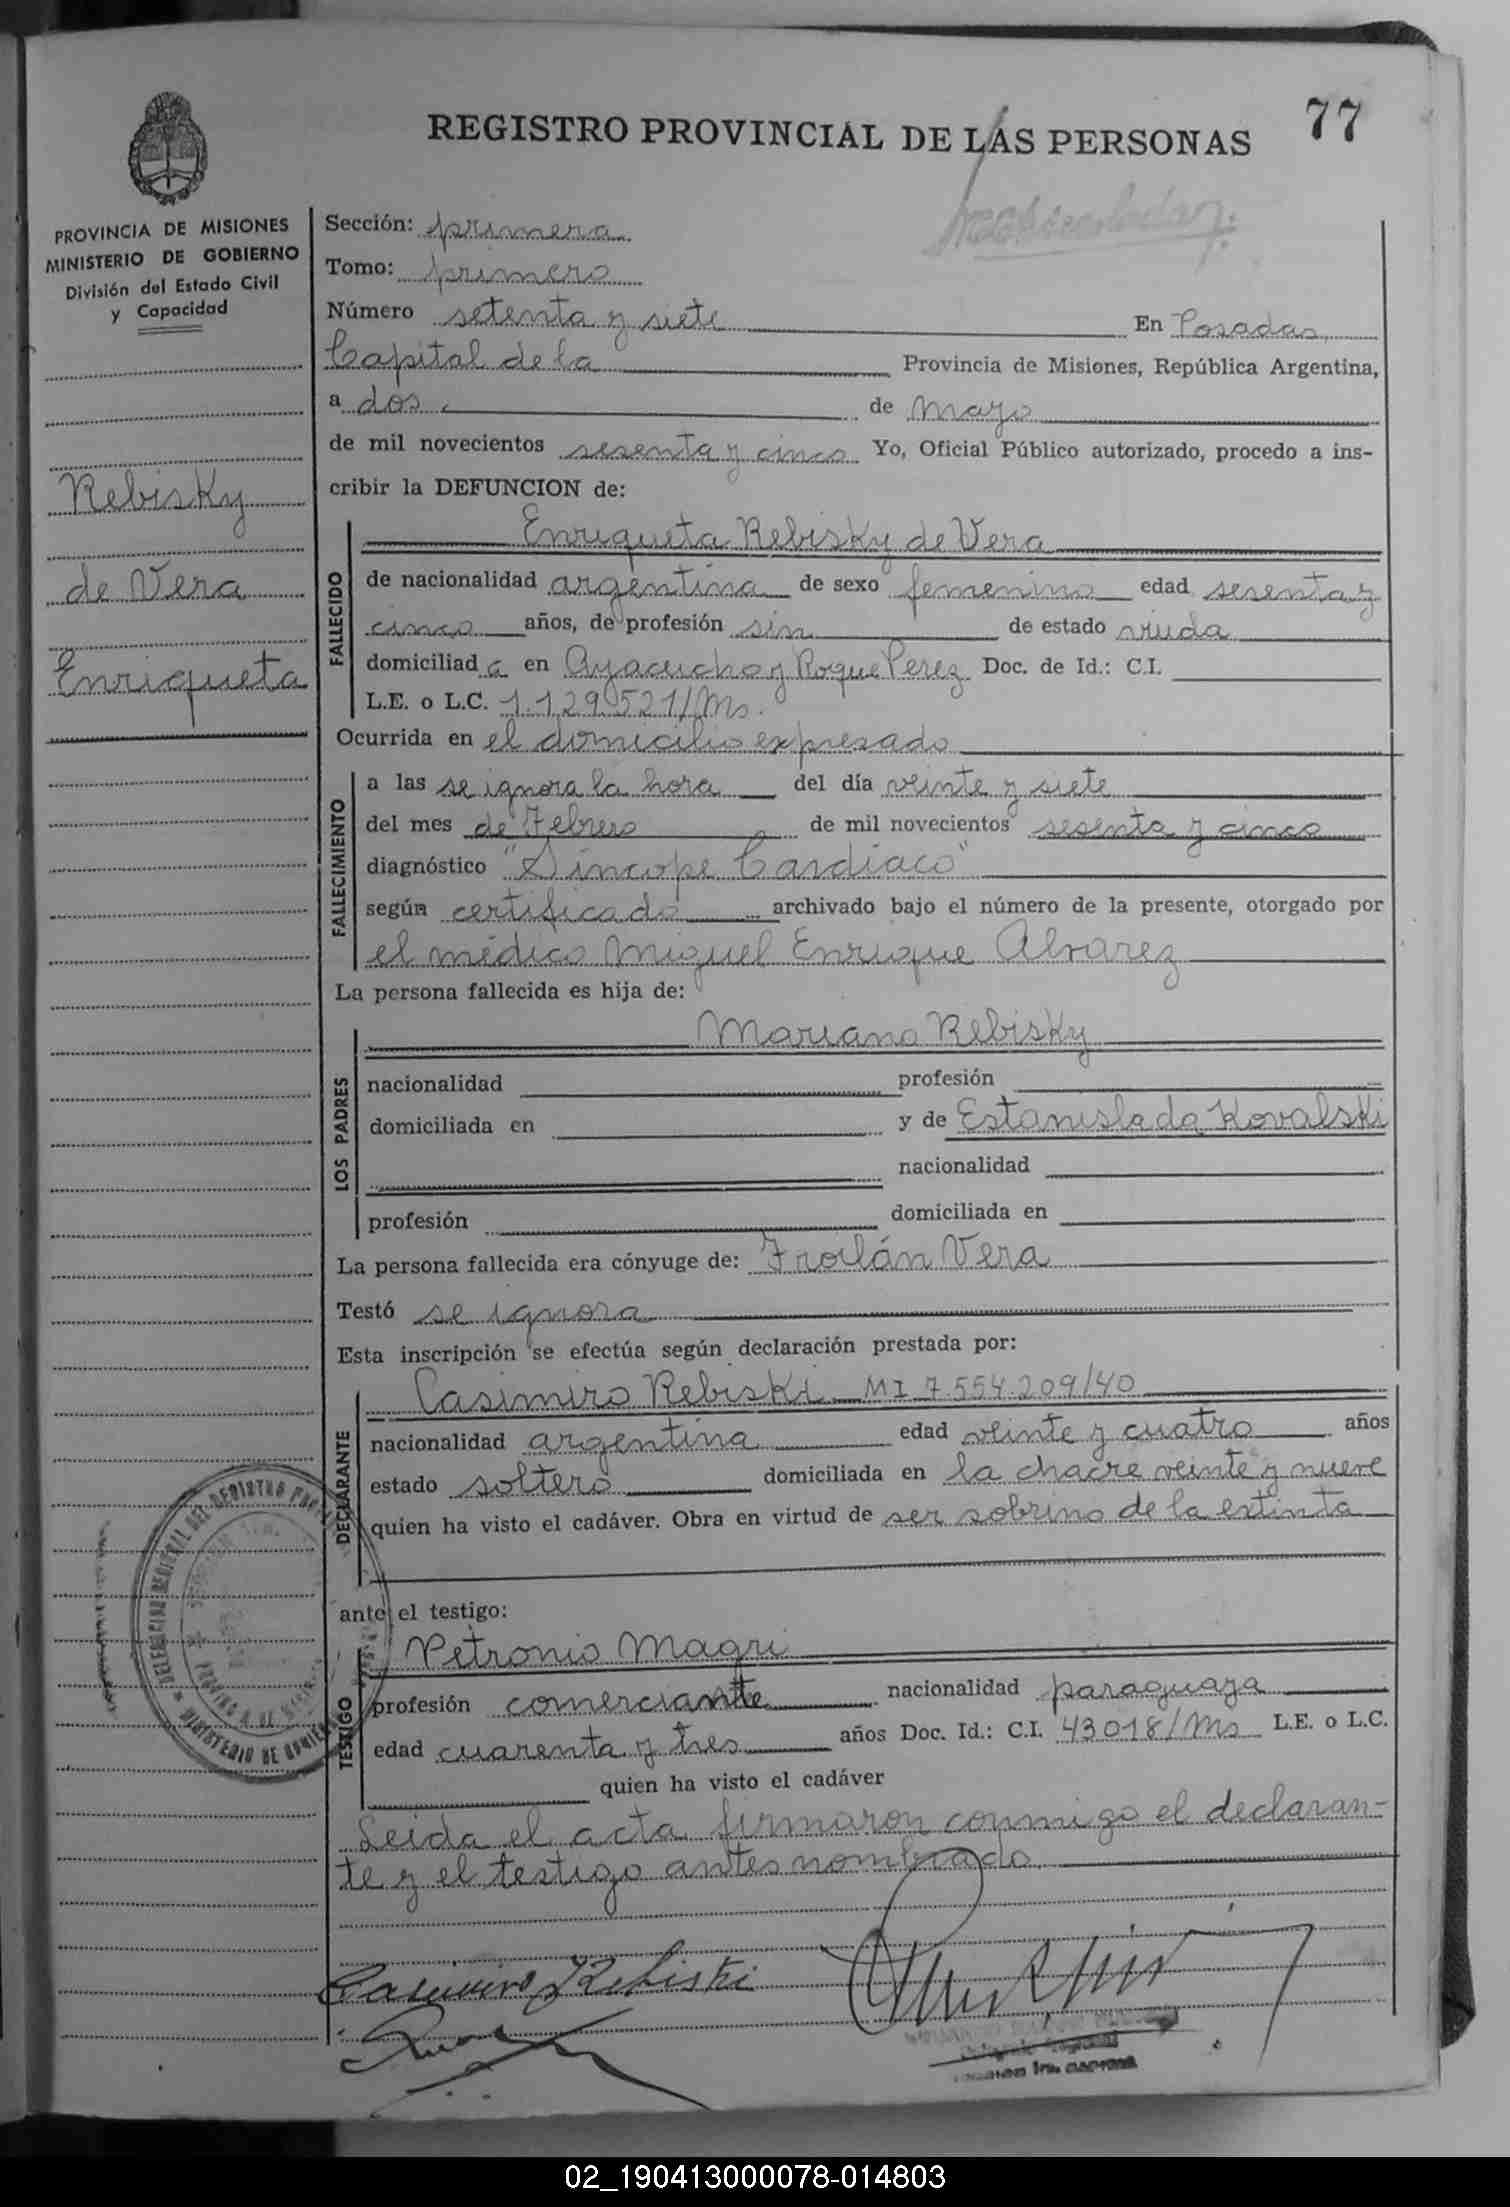 77
REGISTRO PROVINCIAL DE LAS PERSONAS
PROVINCIA DE MISIONES
MINISTERIO DE GOBIERNO
División del Estado Civil
y Capacidad
Rebisky
de Vera
Enriqueta
Sección: primera
Tomo: primero
Número setenta y siete En Posadas,
Capital de la Provincia de Misiones, República Argentina,
a dos de mayo
de mil novecientos sesenta y cinco Yo, Oficial Público autorizado, procedo a ins-
cribir la DEFUNCION de:
FALLECIDO
Enriqueta Rebisky de Vera
de nacionalidad argentina de sexo femenino edad sesenta y
cinco años, de profesión sin de estado viuda
domiciliada en Ayacucho y Roque Perez Doc. de Id.: C.I.
L.E. o L.C. 1.129.521/Ms.
Ocurrida en el domicilio expresado
FALLECIMIENTO
a las se ignora la hora del día veinte y siete
del mes de Febrero de mil novecientos sesenta y cinco
diagnóstico "Síncope Cardíaco"
según certificado archivado bajo el número de la presente, otorgado por
el médico Miguel Enrique Alvarez
La persona fallecida es hija de:
LOS PADRES
Mariano Rebisky
nacionalidad profesión
domiciliada en y de Estanislada Kovalski
nacionalidad
profesión domiciliada en
La persona fallecida era cónyuge de: Froilán Vera
Testó se ignora
Esta inscripción se efectúa según declaración prestada por:
DECLARANTE
Casimiro Rebiski MI 7.554.209/40
nacionalidad argentina edad veinte y cuatro años
estado soltero domiciliada en la chacre veinte y nueve
quien ha visto el cadáver. Obra en virtud de ser sobrino de la extinta
ante el testigo:
TESTIGO
Petronio Magri
profesión comerciante nacionalidad paraguaya
edad cuarenta y tres años Doc. Id.: C.I. 43018/Ms L.E. o L.C.
quien ha visto el cadáver
Leída el acta firmaron conmigo el declaran-
te y el testigo antes nombrado.
Casimiro Rebiski
02_190413000078-014803